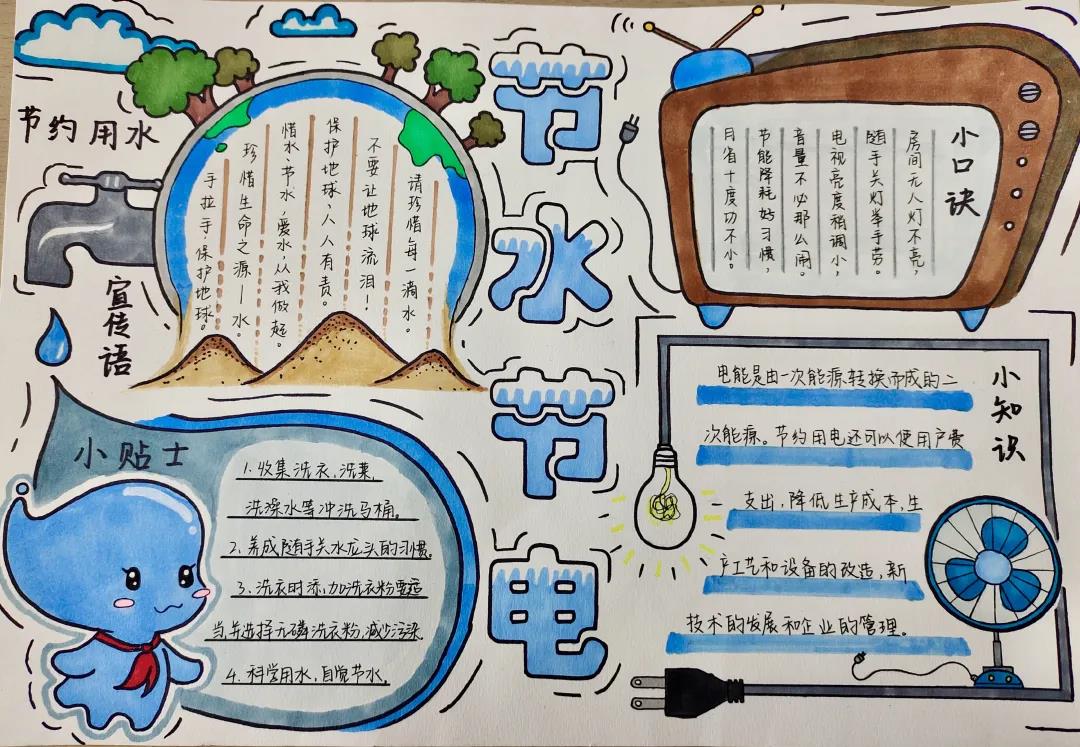 节约用水
宣传语
请珍惜每一滴水。
不要让地球流泪！
保护地球，人人有责。
惜水、节水，爱水，从我做起。
珍惜生命之源—水。
手拉手，保护地球。
节水节电
小口诀
房间无人灯不亮，
随手关灯举手劳。
电视亮度稍调小，
音量不必那么闹。
节能降耗好习惯，
月省十度功不小。
小贴士
1. 收集洗衣，洗菜，
洗澡水等冲洗马桶。
2. 养成随手关水龙头的习惯。
3. 洗衣时添加洗衣粉要适
当，并选择无磷洗衣粉，减少污染
4. 科学用水，自觉节水。
小知识
电能是由一次能源转换而成的二
次能源。节约用电还可以使用户费
支出，降低生产成本，生
产工艺和设备的改造，新
技术的发展和企业的管理。